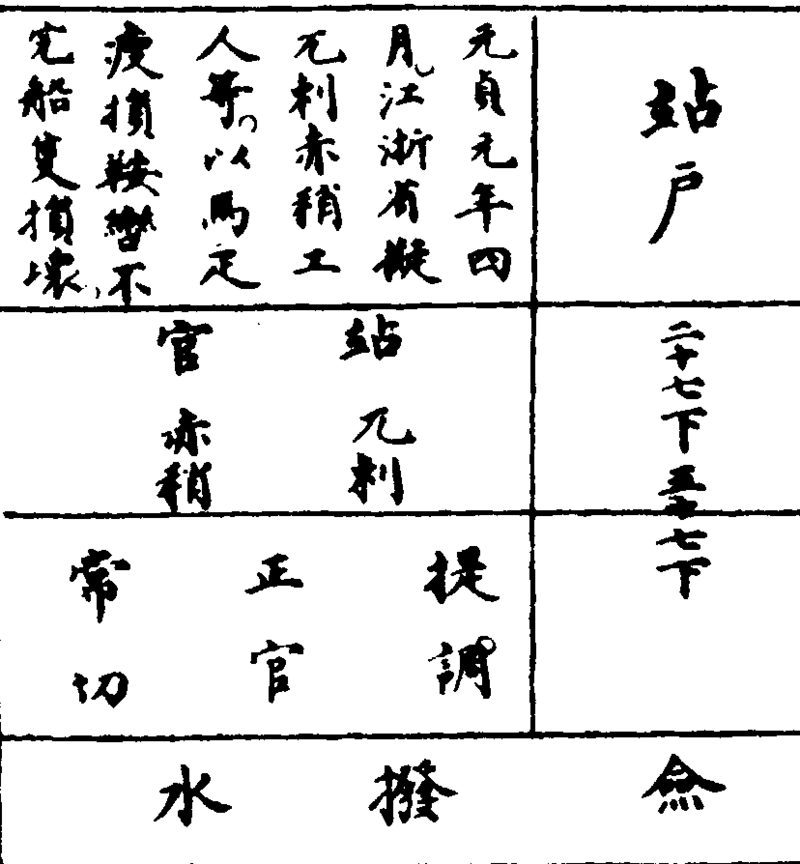 站户
二十七下五十七下
元貞元年四
月江浙省擬
兀剌赤稍工
人等以馬疋
瘦損鞍轡不
完船隻損壞
站 兀剌
官 赤稍
提調
正官
常切
僉撥水